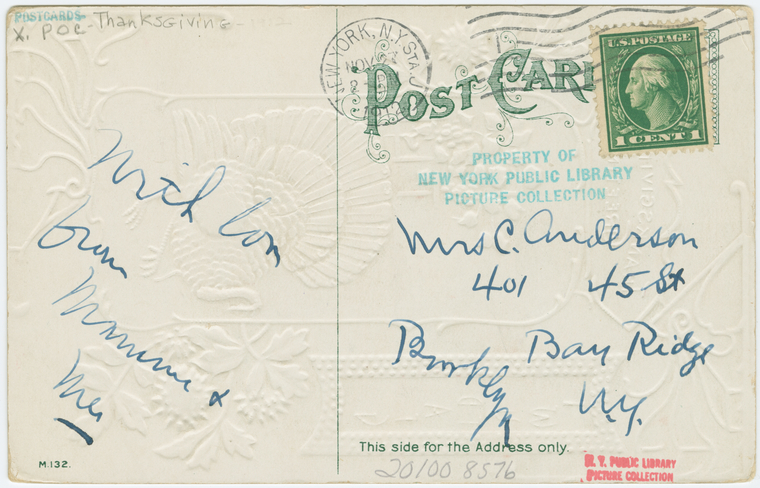 POSTCARDS-
X. POC-Thanksgiving-
NEW YORK, N.Y. STA.
NOV
POST CARD
U.S. POSTAGE
1 CENT 1
PROPERTY OF
NEW YORK PUBLIC LIBRARY
PICTURE COLLECTION
With Love
from
&
Me
Mrs C. Anderson
401 45 St
Bay Ridge
Brooklyn
N.Y.
This side for the Address only.
M.132.
20100 8576
N. Y. PUBLIC LIBRARY
PICTURE COLLECTION